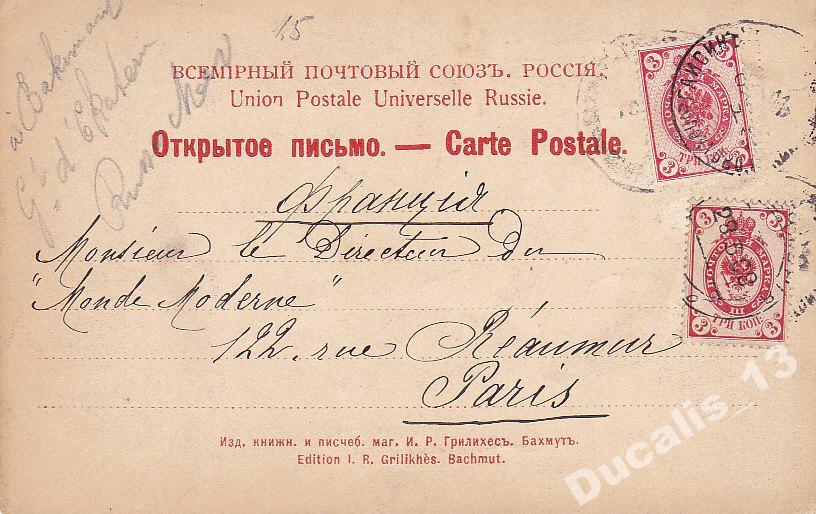 15
à Bakhmout
Gt d'Ekaterin
Russie Mérid
ВСЕМІРНЫЙ ПОЧТОВЫЙ СОЮЗЪ. РОССІЯ.
Union Postale Universelle Russie.
Открытое письмо. — Carte Postale.
Франція
Monsieur le Directeur du
"Monde Moderne"
122, rue Réaumur
Paris
3 3
ПОЧТОВАЯ МАРКА
ТРИ КОП.
3 3
ПОЧТОВАЯ МАРКА
ТРИ КОП.
3 3
Изд. книжн. и писчеб. маг. И. Р. Грилихесъ. Бахмутъ.
Edition I. R. Grilikhès. Bachmut.
Ducalis_13